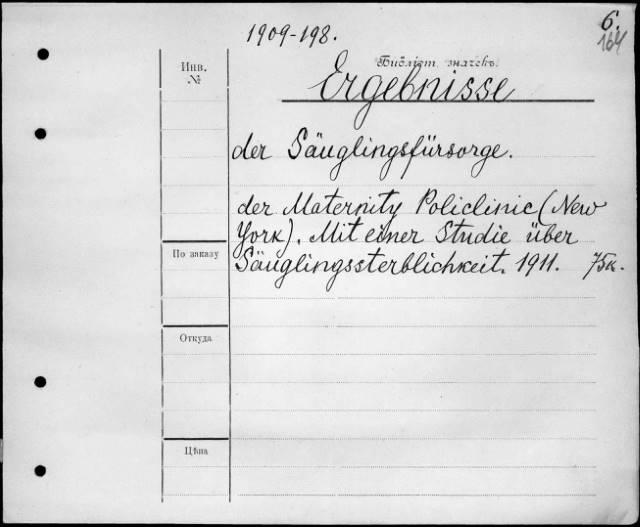 1909-198.
6.
164
Инв.
№
Библіот. значекъ.
Ergebnisse
der Säuglingsfürsorge.
der Maternity Policlinic (New
York). Mit einer Studie über
Säuglingssterblichkeit. 1911. 75к.
По заказу
Откуда
Цѣна